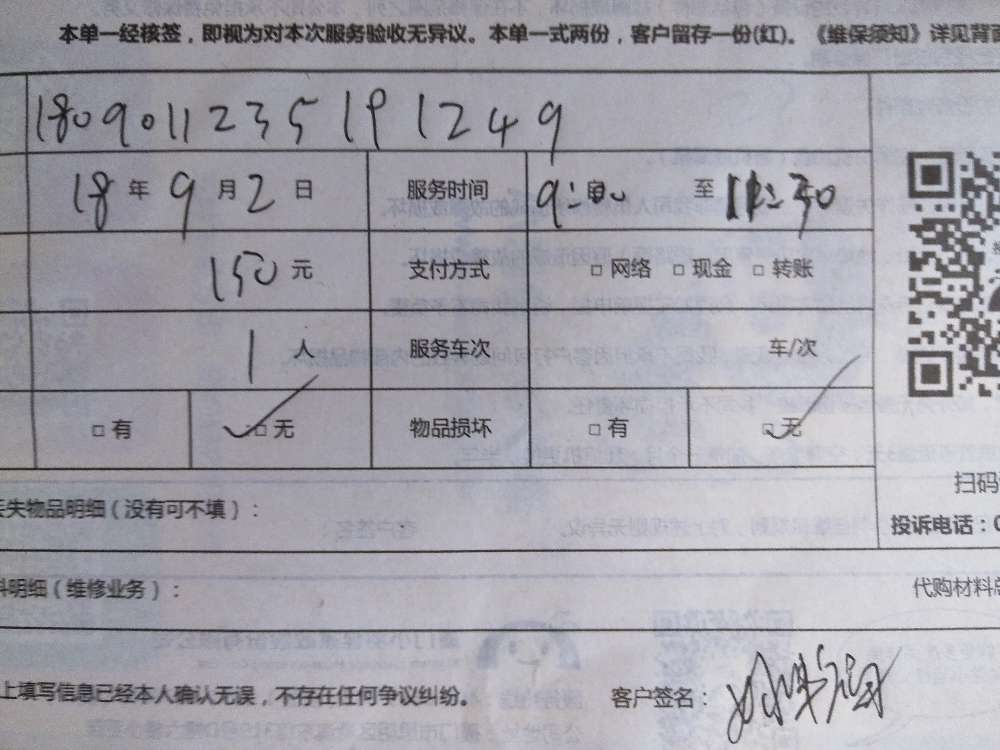 本单一经核签，即视为对本次服务验收无异议。本单一式两份，客户留存一份(红)。《维保须知》详见背面
1809011235191249
18 年 9 月 2 日 服务时间 至
150 元 支付方式 □ 网络 □ 现金 □ 转账
1 人 服务车次 车/次
□ 有 □ 无 物品损坏 □ 有 □ 无
失物品明细（没有可不填）：
扫码
投诉电话：0
明细（维修业务）： 代购材料总
上填写信息已经本人确认无误，不存在任何争议纠纷。 客户签名：